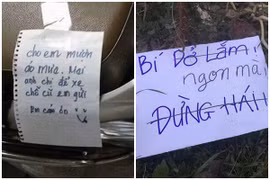 cho em mượn
áo mưa. Mai
anh chị để xe
chỗ cũ em gửi
Em cảm ơn
Bí Đỏ Lắm!
ngon mà
ĐỪNG HÁI